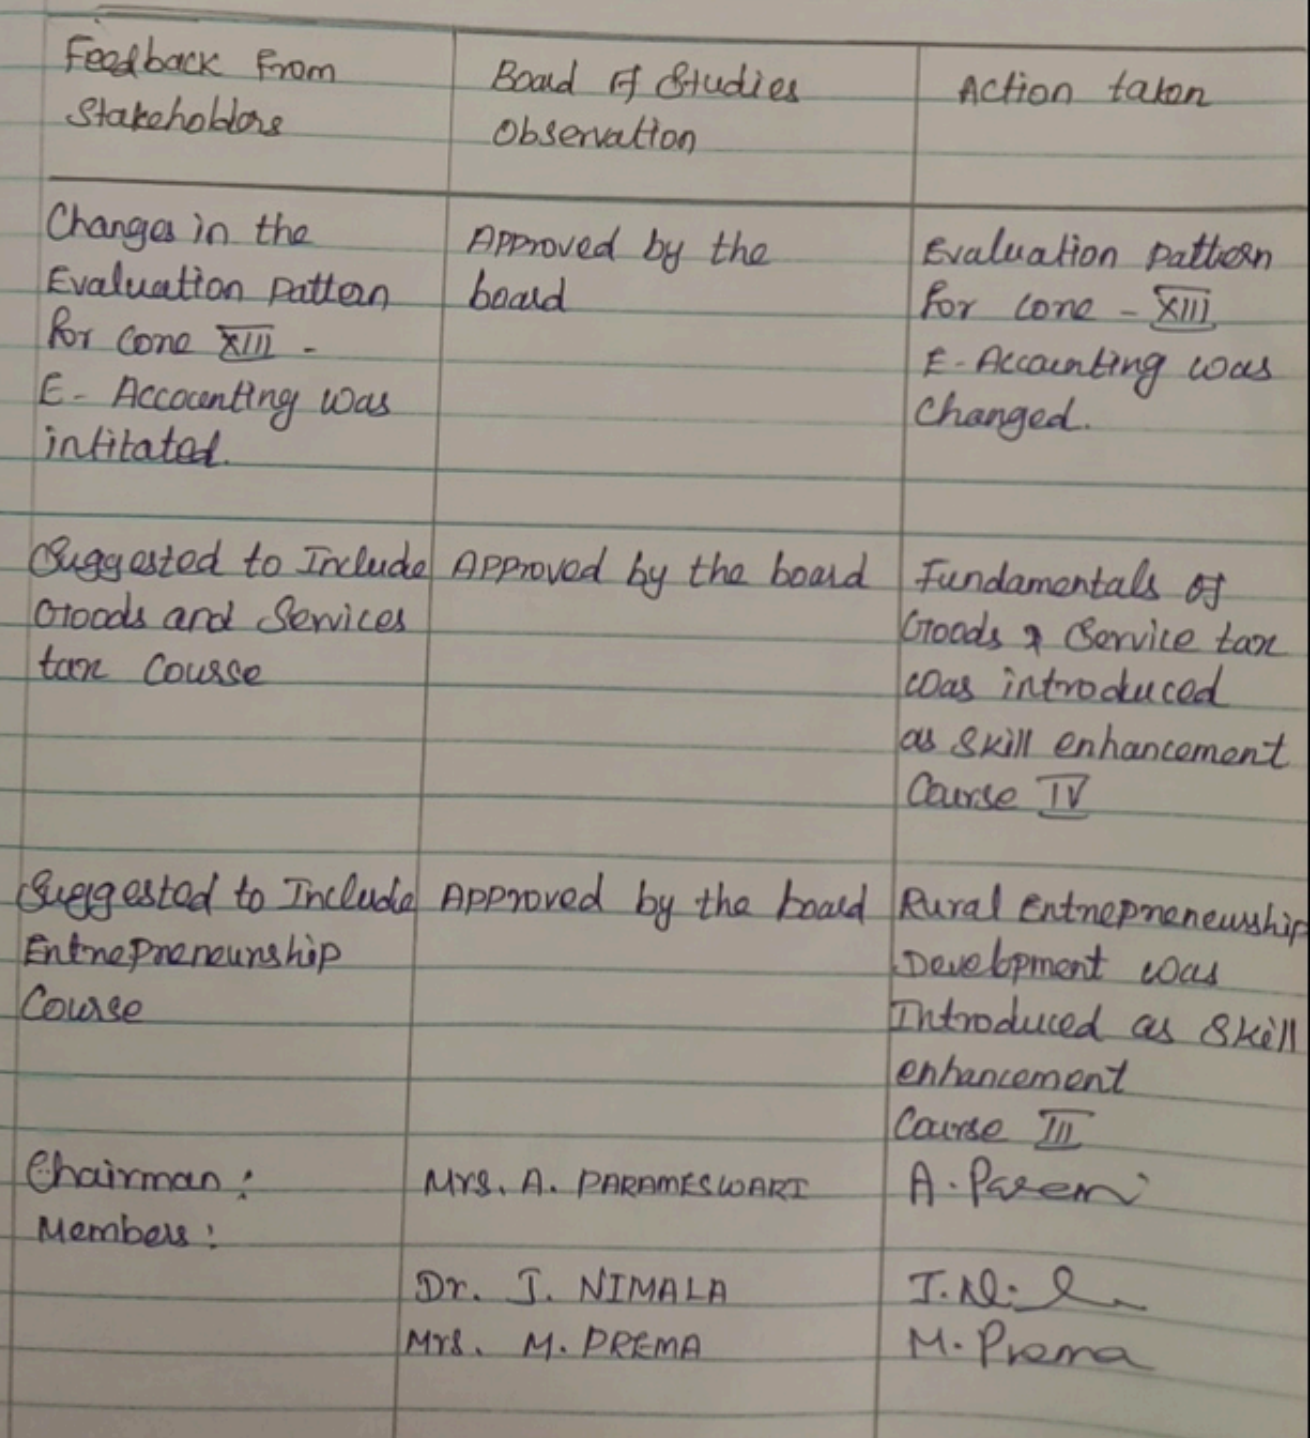 Feedback From
Stakeholders
Board of Studies
Observation
Action taken
Changes in the
Evaluation pattern
for Core XIII -
E- Accounting was
intitated.
Approved by the
board
Evaluation pattern
for core - XIII
E-Accounting was
changed.
Suggested to Include
Goods and Services
tax Course
Approved by the board
Fundamentals of
Goods & Service tax
was introduced
as skill enhancement
Course IV
Suggested to Include
Entrepreneurship
Course
Approved by the board
Rural Entrepreneurship
Development was
Introduced as skill
enhancement
Course III
Chairman :
Mrs. A. PARAMESWARI
A.
Members :
Dr. J. NIMALA
J.
Mrs. M. PREMA
M. Prema